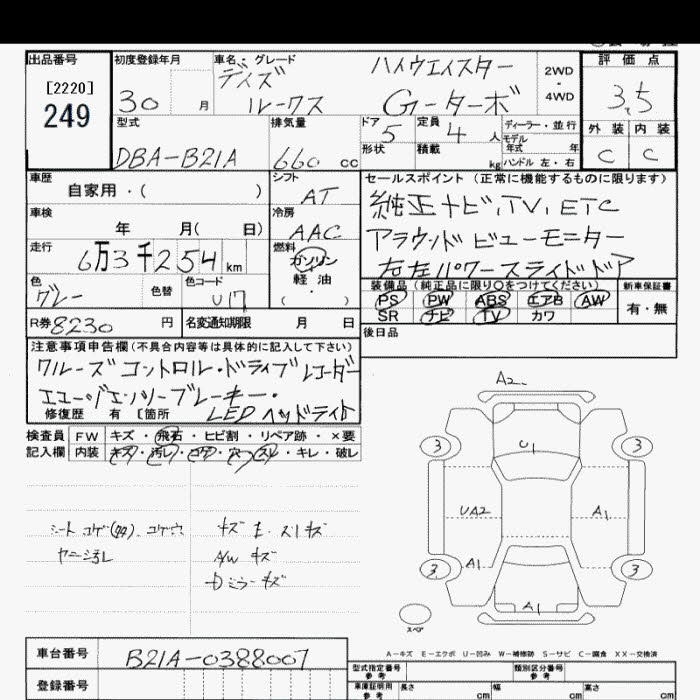 出品番号
[2220]
249
初度登録年月
30 月
車名・グレード
デイズ
ルークス
ハイウエイスター
Gーターボ
2WD
・
4WD
評価点
3.5
外装 内装
C C
型式
DBA-B21A
排気量
660 cc
ドア
5
定員
4 人
形状
積載
kg
ディーラー・並行
モデル
年式 年
ハンドル 左・右
車歴
自家用・( )
シフト
AT
車検
年 月( 日)
冷房
AAC
走行
6万3千254 km
燃料
ガソリン
軽油
( )
色
グレー
色替
色コード
R券 8230 円
名変通知期限 月 日
セールスポイント (正常に機能するものに限ります)
純正ナビ、TV、ETC
アラウンドビューモニター
右左パワースライドドア
装備品 (純正品に限り○をつけてください)
PS PW ABS エアB AW
SR ナビ TV カワ
新車保証書
有・無
後日品
注意事項申告欄 (不具合内容等は具体的に記入して下さい)
クルーズコントロール・ドライブレコーダー
エマージェンシーブレーキー・
修復歴 有 〔箇所 LEDヘッドライト
検査員
記入欄
FW キズ・飛石・ヒビ割・リペア跡・×要
内装 キズ・汚レ・コゲ・穴・スレ・キレ・破レ
ヤニ汚レ
A/W キズ
A2
3 U1 3
UA2 A1
3 A1 3
A1
スペア
A−キズ E−エクボ U−凹み W−補修跡 S−サビ C−腐食 XX−交換済
車台番号
B21A-0388007
登録番号
型式指定番号
参考
類別区分番号
参考
車庫証明用
参考
長さ cm
幅 cm
高さ cm